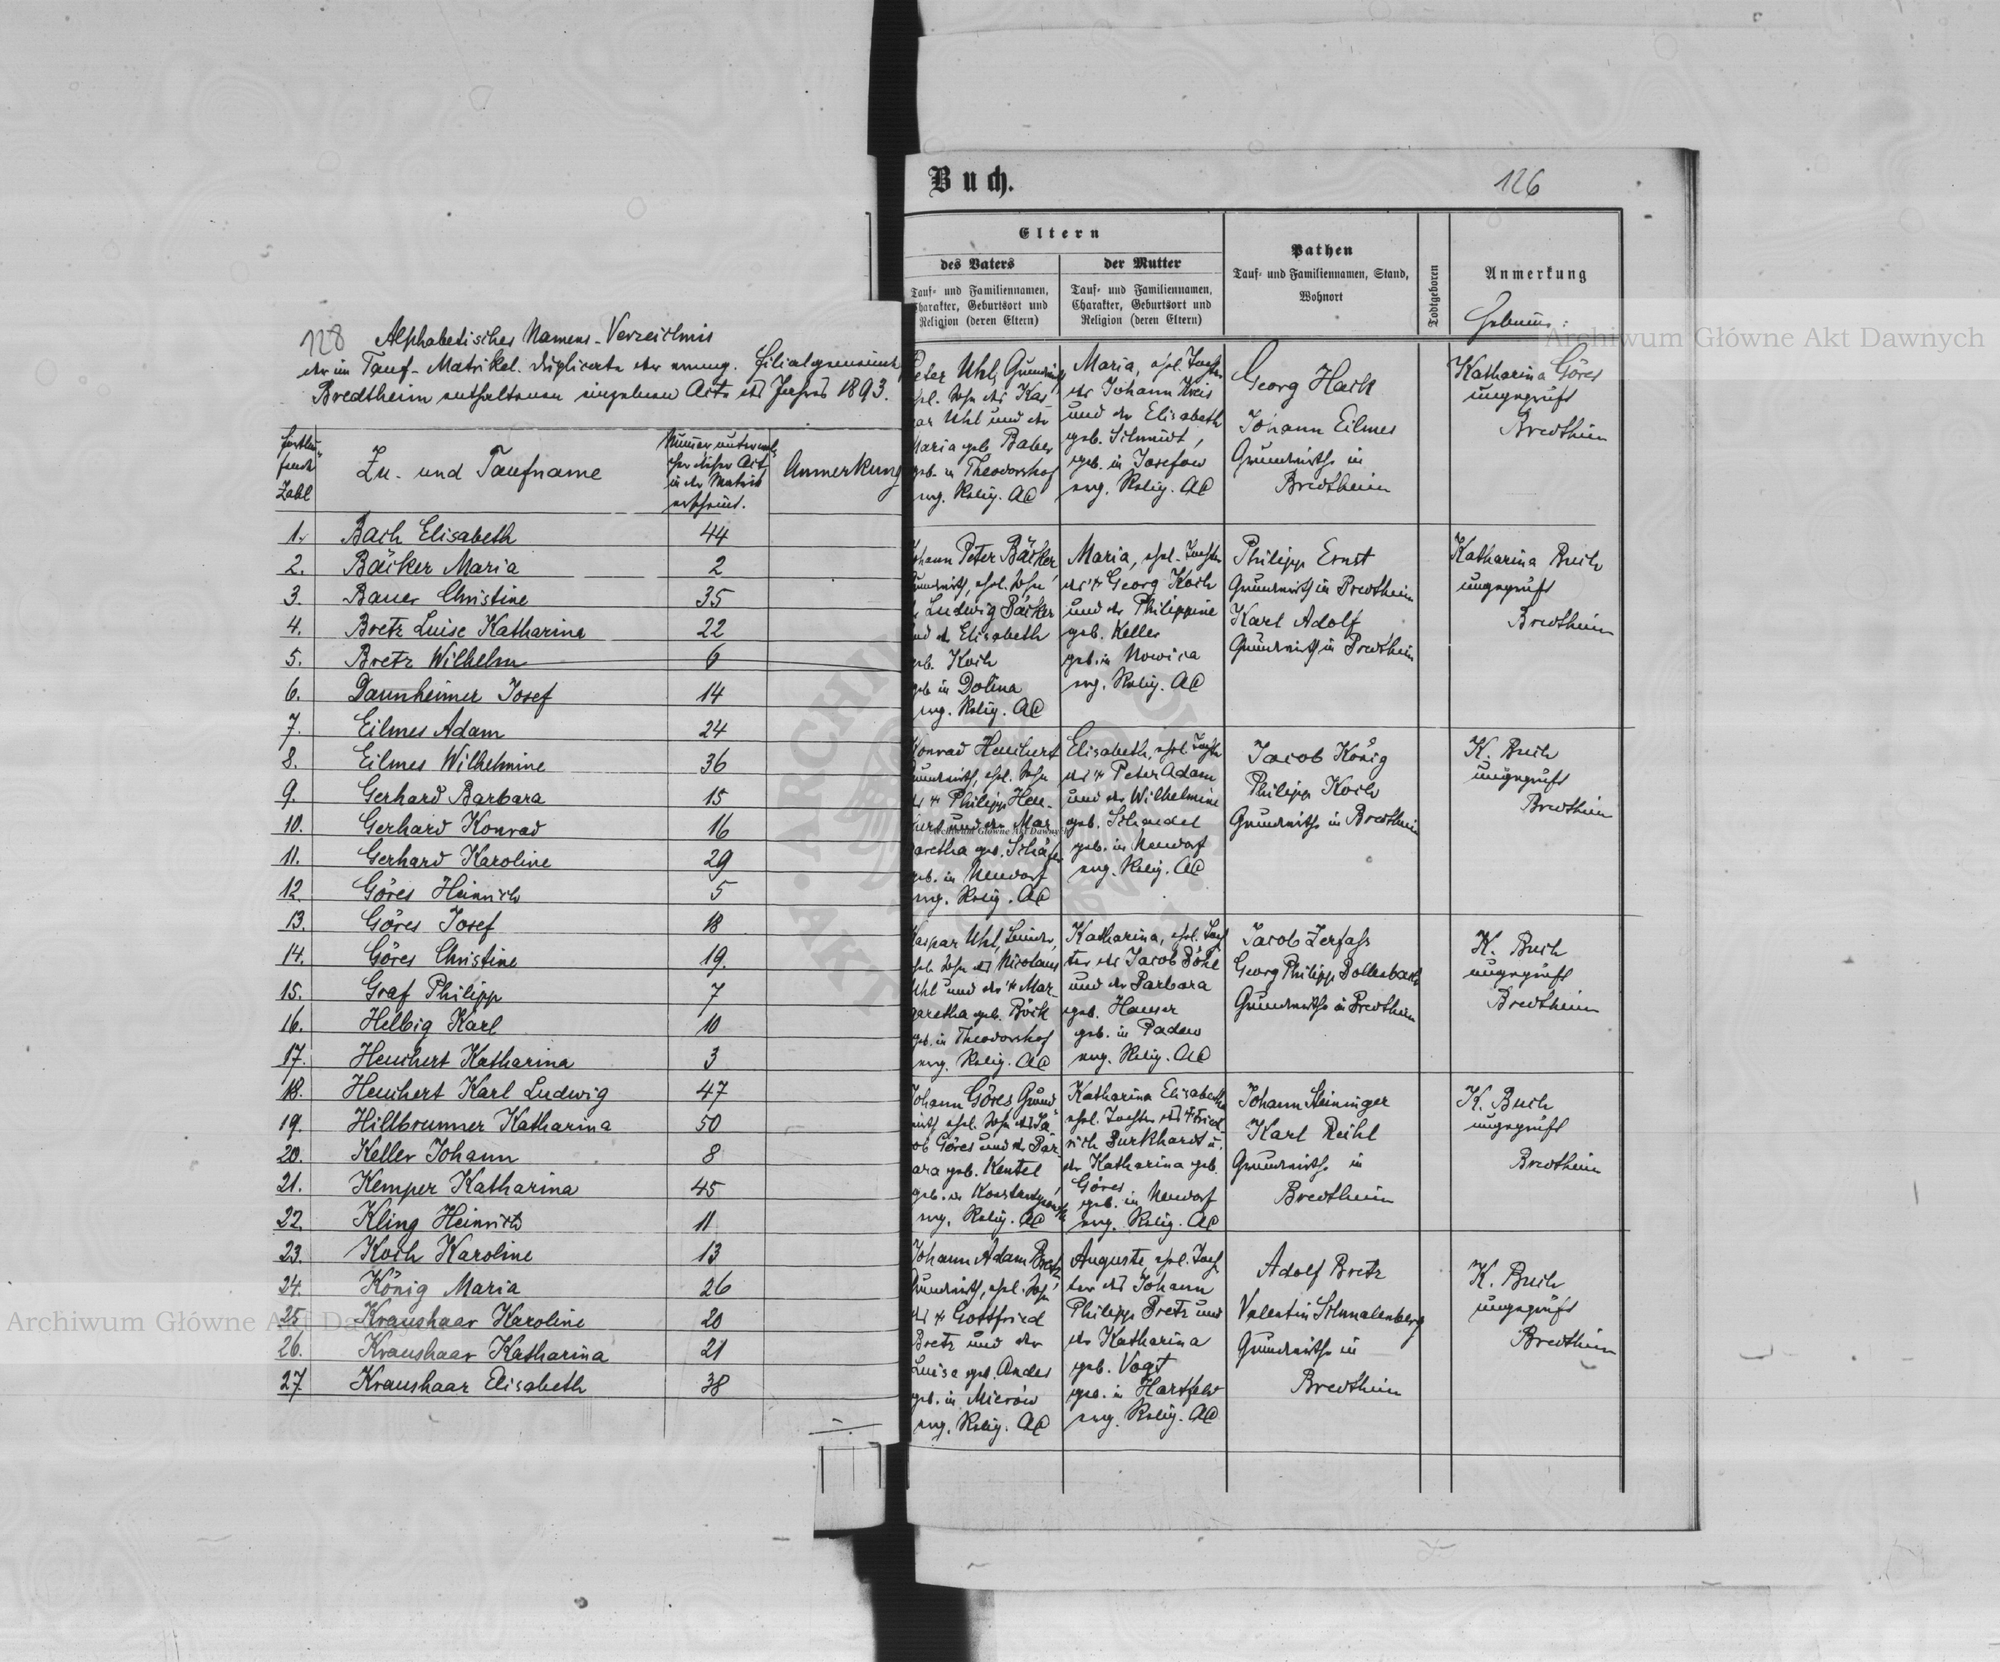 128 Alphabetisches Namens-Verzeichnis
der im Tauf-Matrikel-Duplicate der evang. Filialgemeinde
Bredtheim enthaltenen einzelnen Acte des Jahres 1893.
Fortlaufende Zahl
Zu- und Taufname
Numer unter welcher dieser Act in der Matrik erscheint.
Anmerkung
1. Bach Elisabeth 44
2. Bäcker Maria 2
3. Bauer Christine 35
4. Bretz Luise Katharina 22
5. Bretz Wilhelm 6
6. Dannheimer Josef 14
7. Eilmes Adam 24
8. Eilmes Wilhelmine 36
9. Gerhard Barbara 15
10. Gerhard Konrad 16
11. Gerhard Karoline 29
12. Göres Heinrich 5
13. Göres Josef 18
14. Göres Christine 19.
15. Graf Philipp 7
16. Helbig Karl 10
17. Heuchert Katharina 3
18. Heuchert Karl Ludwig 47
19. Hillbrunner Katharina 50
20. Keller Johann 8
21. Kemper Katharina 45
22. Kling Heinrich 11
23. Koch Karoline 13
24. König Maria 26
25. Kraushaar Karoline 20
26. Kraushaar Katharina 21
27. Kraushaar Elisabeth 38
Buch.
126
Eltern
des Vaters
Tauf- und Familiennamen,
Charakter, Geburtsort und
Religion (deren Eltern)
der Mutter
Tauf- und Familiennamen,
Charakter, Geburtsort und
Religion (deren Eltern)
Pathen
Tauf- und Familiennamen, Stand,
Wohnort
Todtgeboren
Anmerkung
Peter Uhl, Grundwirth
ehl. Sohn des Kas-
par Uhl und der
Maria geb. Baber
geb. in Theodorshof
evg. Relig. AC
Maria, ehl. Tochter
des Johann Kreis
und der Elisabeth
geb. Schmidt,
geb. in Josefow
evg. Relig. AC
Georg Hack
Johann Eilmes
Grundwirthe in
Bredtheim
Katharina Göres
ungeprüft
Bredtheim
Johann Peter Bäcker
Grundwirth, ehl. Sohn
Ludwig Bäcker
und der Elisabeth
geb. Koch
geb. in Dolina
evg. Relig. AC
Maria, ehl. Tochter
des Georg Koch
und der Philippine
geb. Keller
geb. in Nowica
evg. Relig. AC
Philipp Ernst
Grundwirth in Bredtheim
Karl Adolf
Grundwirth in Bredtheim
Katharina Buch
ungeprüft
Bredtheim
Konrad Heuchert
Grundwirth, ehl. Sohn
des Philipp Heu-
chert und der Mar-
garetha geb. Schäfer
geb. in Neudorf
evg. Relig. AC
Elisabeth, ehl. Tochter
des Peter Adam
und der Wilhelmine
geb. Schindel
geb. in Neudorf
evg. Relig. AC
Jacob König
Philipp Koch
Grundwirthe in Bredtheim
K. Buch
ungeprüft
Bredtheim
Kaspar Uhl,
ehl. Sohn des Nicolaus
Uhl und der Mar-
garetha geb. Böck
geb. in Theodorshof
evg. Relig. AC
Katharina, ehl. Toch
ter des Jacob Döhl
und der Barbara
geb. Hauser
geb. in Padew
evg. Relig. AC
Jacob Zerfass
Georg Philipp Dollenbach
Grundwirthe in Bredtheim
K. Buch
ungeprüft
Bredtheim
Johann Göres Grund-
wirth ehl. Sohn des Ja
cob Göres und der Bar
bara geb. Kentel
geb. in
evg. Relig. AC
Katharina Elisabetha
ehl. Tochter des Fried
rich Burkhardt u.
der Katharina geb.
Göres
geb. in Neudorf
evg. Relig. AC
Johann Steininger
Karl Reihl
Grundwirthe in
Bredtheim
K. Buch
ungeprüft
Bredtheim
Johann Adam Bretz
Grundwirth, ehl. Sohn
des Gottfried
Bretz und der
Luise geb. Andes
geb. in Mierów
evg. Relig. AC
Auguste, ehl. Toch
ter des Johann
Philipp Bretz und
der Katharina
geb. Vogt
geb. in Hartfeld
evg. Relig. AC
Adolf Bretz
Valentin Schmalenberg
Grundwirthe in
Bredtheim
K. Buch
ungeprüft
Bredtheim
Archiwum Główne Akt Dawnych
Archiwum Główne Akt Dawnych
Archiwum Główne Akt Dawnych